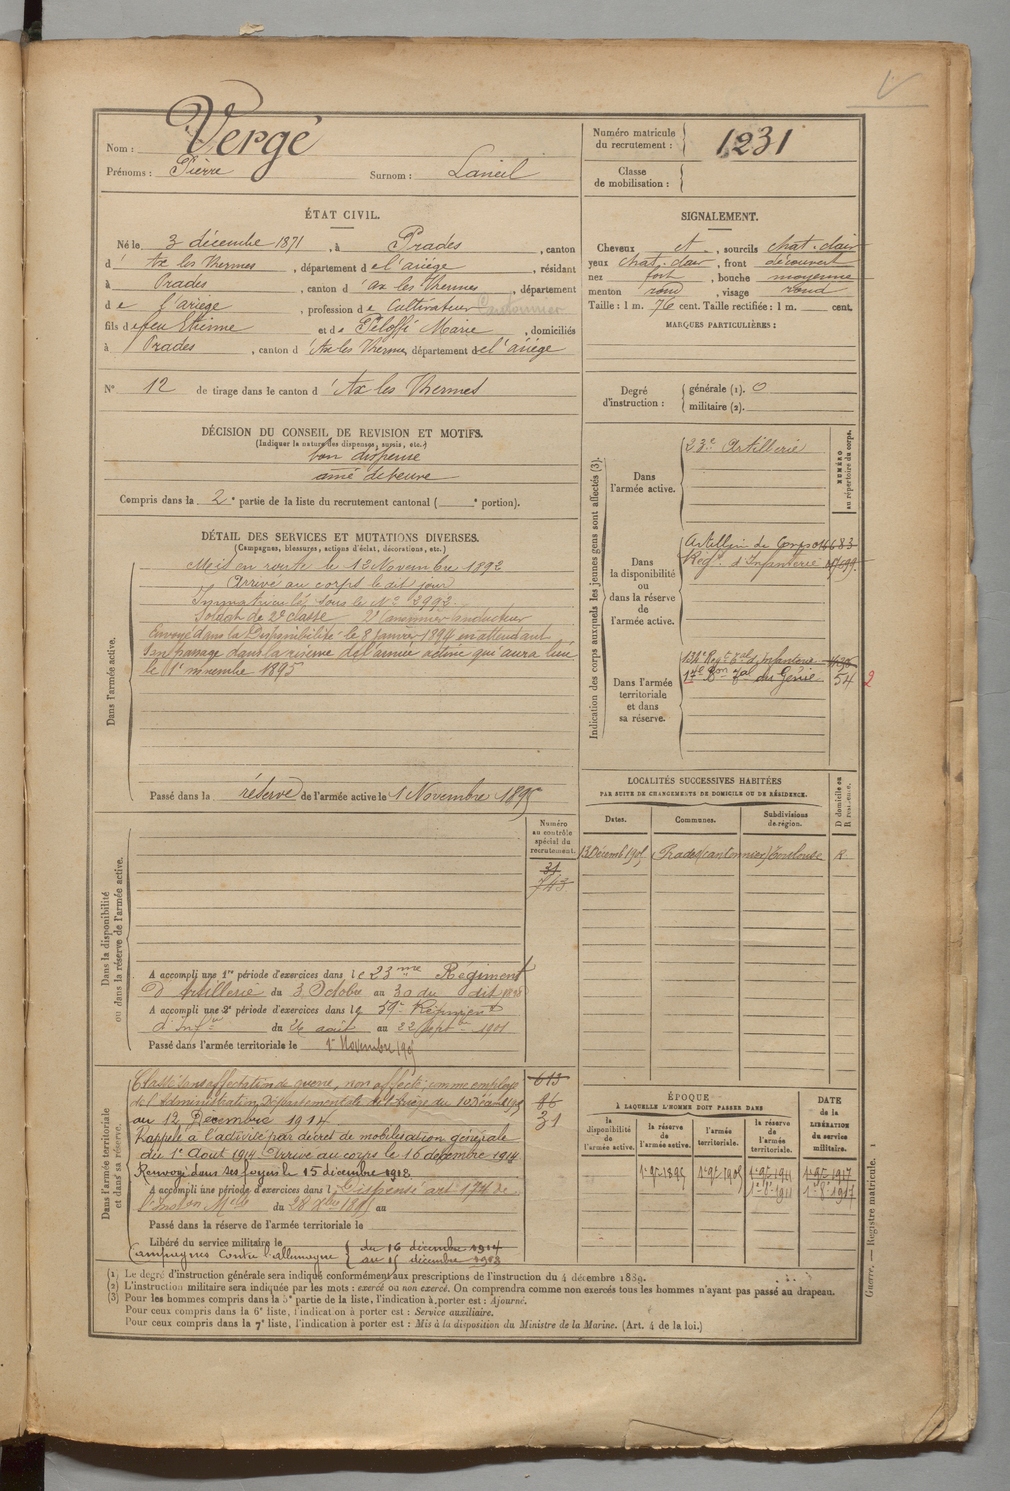 Nom : Vergé
Prénoms : Pierre Surnom : Laneil
Numéro matricule du recrutement : 1231
Classe de mobilisation :
ÉTAT CIVIL.
Né le 3 décembre 1871, à Prades, canton
d' Ax les Thermes, département de l'ariége, résidant
à Prades, canton d'ax les Thermes, département
de l'ariege, profession de Cultivateur Cantonnier
fils de feu Etienne et de Péloffé Marie, domiciliés
à Prades, canton d'Ax les Thermes département de l'ariége
N° 12 de tirage dans le canton d'Ax les Thermes
SIGNALEMENT.
Cheveux et, sourcils chat. clair
yeux chat. clair, front découvert
nez fort, bouche moyenne
menton rond, visage rond
Taille : 1 m. 76 cent. Taille rectifiée : 1 m. cent.
MARQUES PARTICULIÈRES :
Degré d'instruction : générale (1). 0
militaire (2).
DÉCISION DU CONSEIL DE REVISION ET MOTIFS.
(Indiquer la nature des dispenses, sursis, etc.)
bon dispense
ainé de veuve
Compris dans la 2e partie de la liste du recrutement cantonal ( e portion).
DÉTAIL DES SERVICES ET MUTATIONS DIVERSES.
(Campagnes, blessures, actions d'éclat, décorations, etc.)
Dans l'armée active.
Mis en route le 12 Novembre 1892
Arrivé au corps le dit jour
Immatriculé sous le N° 3992.
Soldat de 2e classe 2e Canonnier conducteur
Envoyé dans la Disponibilité le 8 janvier 1894 en attendant
son passage dans la réserve de l'armée active qui aura lieu
le 1er novembre 1895
Passé dans la réserve de l'armée active le 1 Novembre 1895
Indication des corps auxquels les jeunes gens sont affectés (3).
NUMÉRO au répertoire du corps.
Dans l'armée active.
23e Artillerie
Dans la disponibilité ou dans la réserve de l'armée active.
Régt. d'Infanterie
Dans l'armée territoriale et dans sa réserve.
134e Régt Tal d'Infanterie
17e Bon Tal du Génie 54 2
LOCALITÉS SUCCESSIVES HABITÉES
PAR SUITE DE CHANGEMENTS DE DOMICILE OU DE RÉSIDENCE.
Dates. Communes. Subdivisions de région. D domicile ou R résidence.
13 Décemb 1905 Prades (cantonnier) Toulouse R
Numéro au contrôle spécial du recrutement.
31
743
Dans la disponibilité ou dans la réserve de l'armée active.
A accompli une 1re période d'exercices dans le 23me Régiment
D'Artillerie du 3 Octobre au 30 du dit
A accompli une 2e période d'exercices dans le 59e Régiment
d'Infie du 26 août au 22 Septbre 1901
Passé dans l'armée territoriale le 1er Novembre 1905
Dans l'armée territoriale et dans sa réserve.
Classé sans affectation de guerre, non affecté, comme employé
de l'Administration Départementale de l'Ariège du
au 12 Décembre 1914
Rappelé à l'activité par décret de mobilisation générale
du 1er Aout 1914 Arrivé au corps le 16 décembre 1914
Renvoyé dans ses foyers le 15 décembre 1918
613
86
31
A accompli une période d'exercices dans l Dispensé art
Passé dans la réserve de l'armée territoriale le
Libéré du service militaire le
Campagnes Contre l'allemagne du 16 décembre 1914
au 15 décembre 1918
ÉPOQUE
À LAQUELLE L'HOMME DOIT PASSER DANS
la disponibilité de l'armée active. la réserve de l'armée active. l'armée territoriale. la réserve de l'armée territoriale. DATE de la LIBÉRATION du service militaire.
1er 9bre 1895 1er 9bre 1905 1er 9bre 1911 1er 9bre 1917
1er 8bre 1911 1er 8bre 1917
(1) Le degré d'instruction générale sera indiqué conformément aux prescriptions de l'instruction du 4 décembre 1889.
(2) L'instruction militaire sera indiquée par les mots : exercé ou non exercé. On comprendra comme non exercés tous les hommes n'ayant pas passé au drapeau.
(3) Pour les hommes compris dans la 5e partie de la liste, l'indication à porter est : Ajourné.
Pour ceux compris dans la 6e liste, l'indication à porter est : Service auxiliaire.
Pour ceux compris dans la 7e liste, l'indication à porter est : Mis à la disposition du Ministre de la Marine. (Art. 4 de la loi.)
Guerre. — Registre matricule. 1